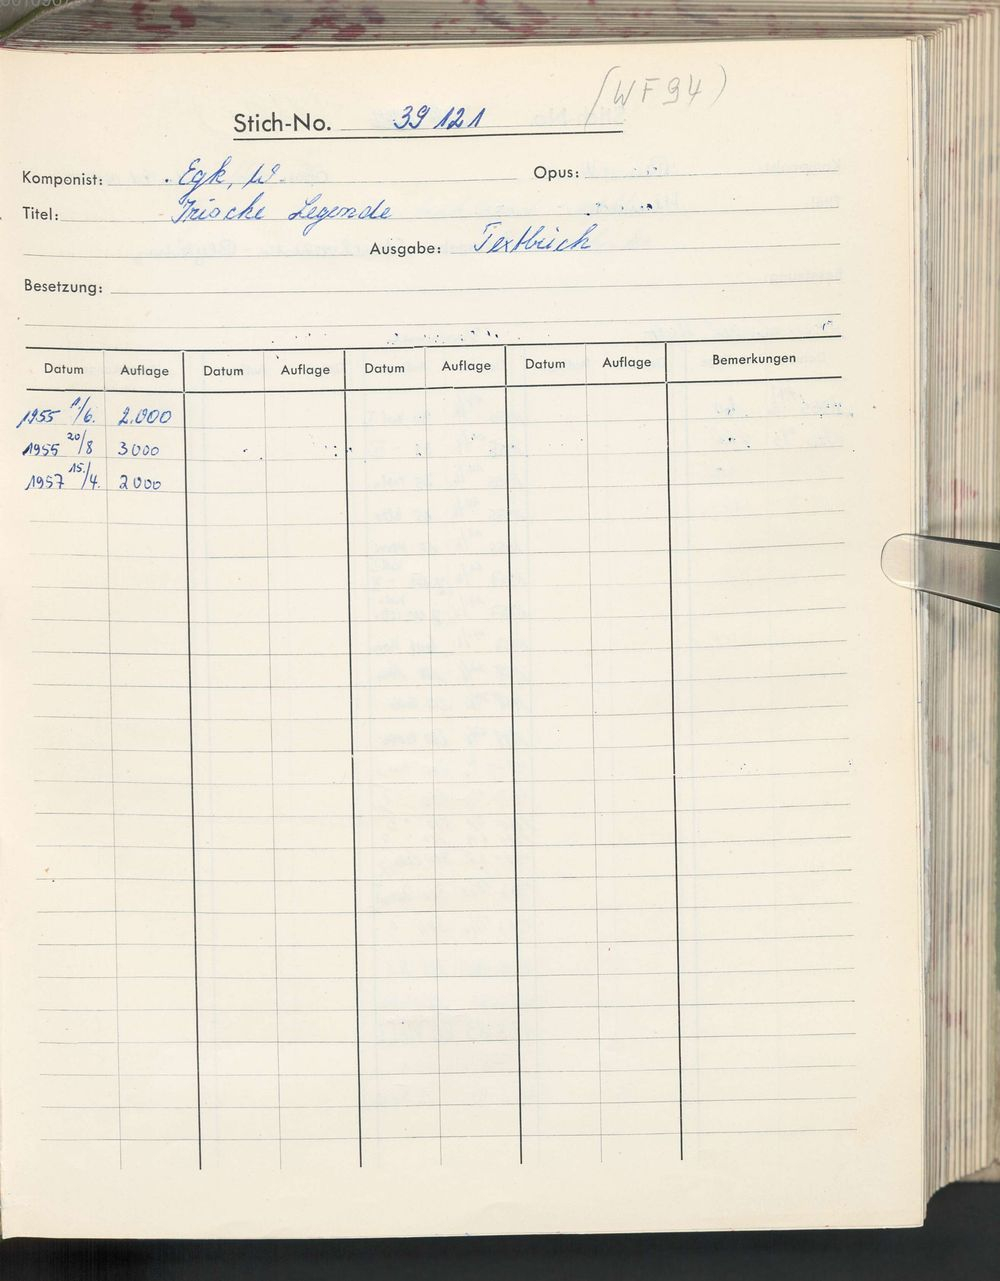 (WF 94)
Stich-No. 39 121
Komponist: Egk, W. Opus:
Titel: Irische Legende
Ausgabe: Textbuch
Besetzung:
Datum Auflage Datum Auflage Datum Auflage Datum Auflage Bemerkungen
1955 /6. 2.000
1955 20/8 3000
1957 15./4. 2000